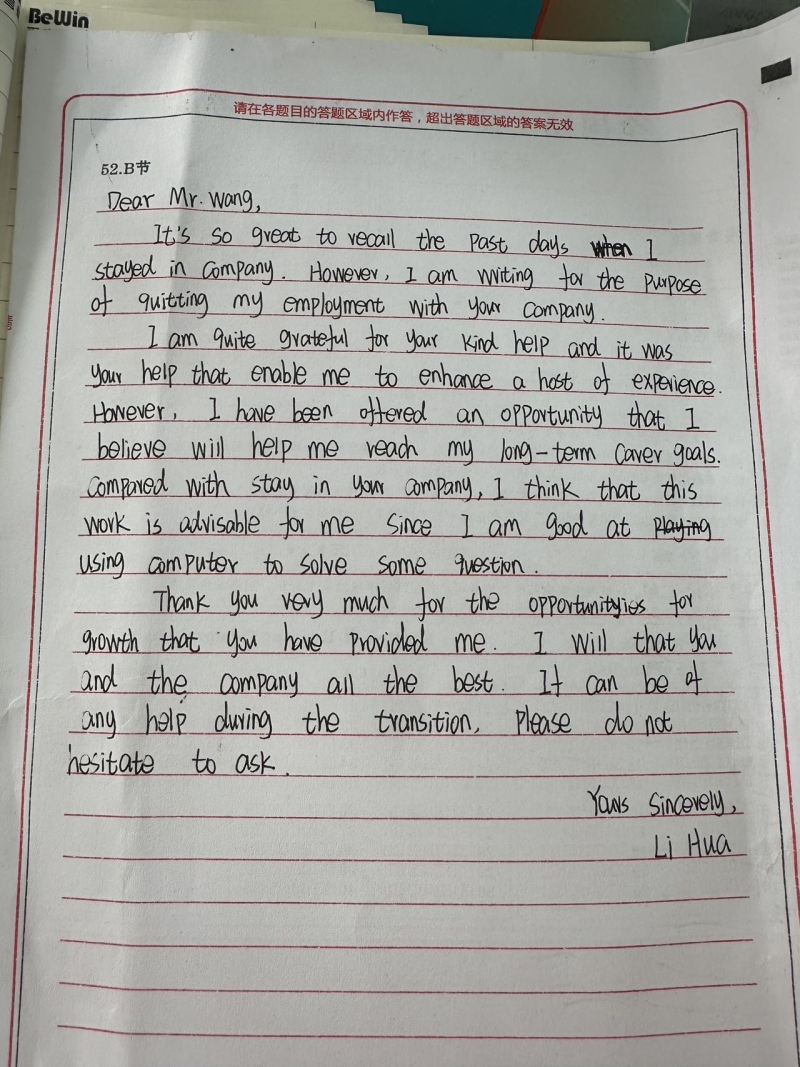 BeWin
请在各题目的答题区域内作答，超出答题区域的答案无效
52.B节
Dear Mr. Wang,
It's so great to recall the past days when I
stayed in company. However, I am writing for the purpose
of quitting my employment with your company.
I am quite grateful for your kind help and it was
your help that enable me to enhance a host of experience.
However, I have been offered an opportunity that I
believe will help me reach my long-term carer goals.
Compared with stay in your company, I think that this
work is advisable for me since I am good at playing
using computer to solve some question.
Thank you very much for the opportunityies for
growth that you have provided me. I will that you
and the company all the best. If can be of
any help during the transition, please do not
hesitate to ask.
Yours Sincerely,
Li Hua